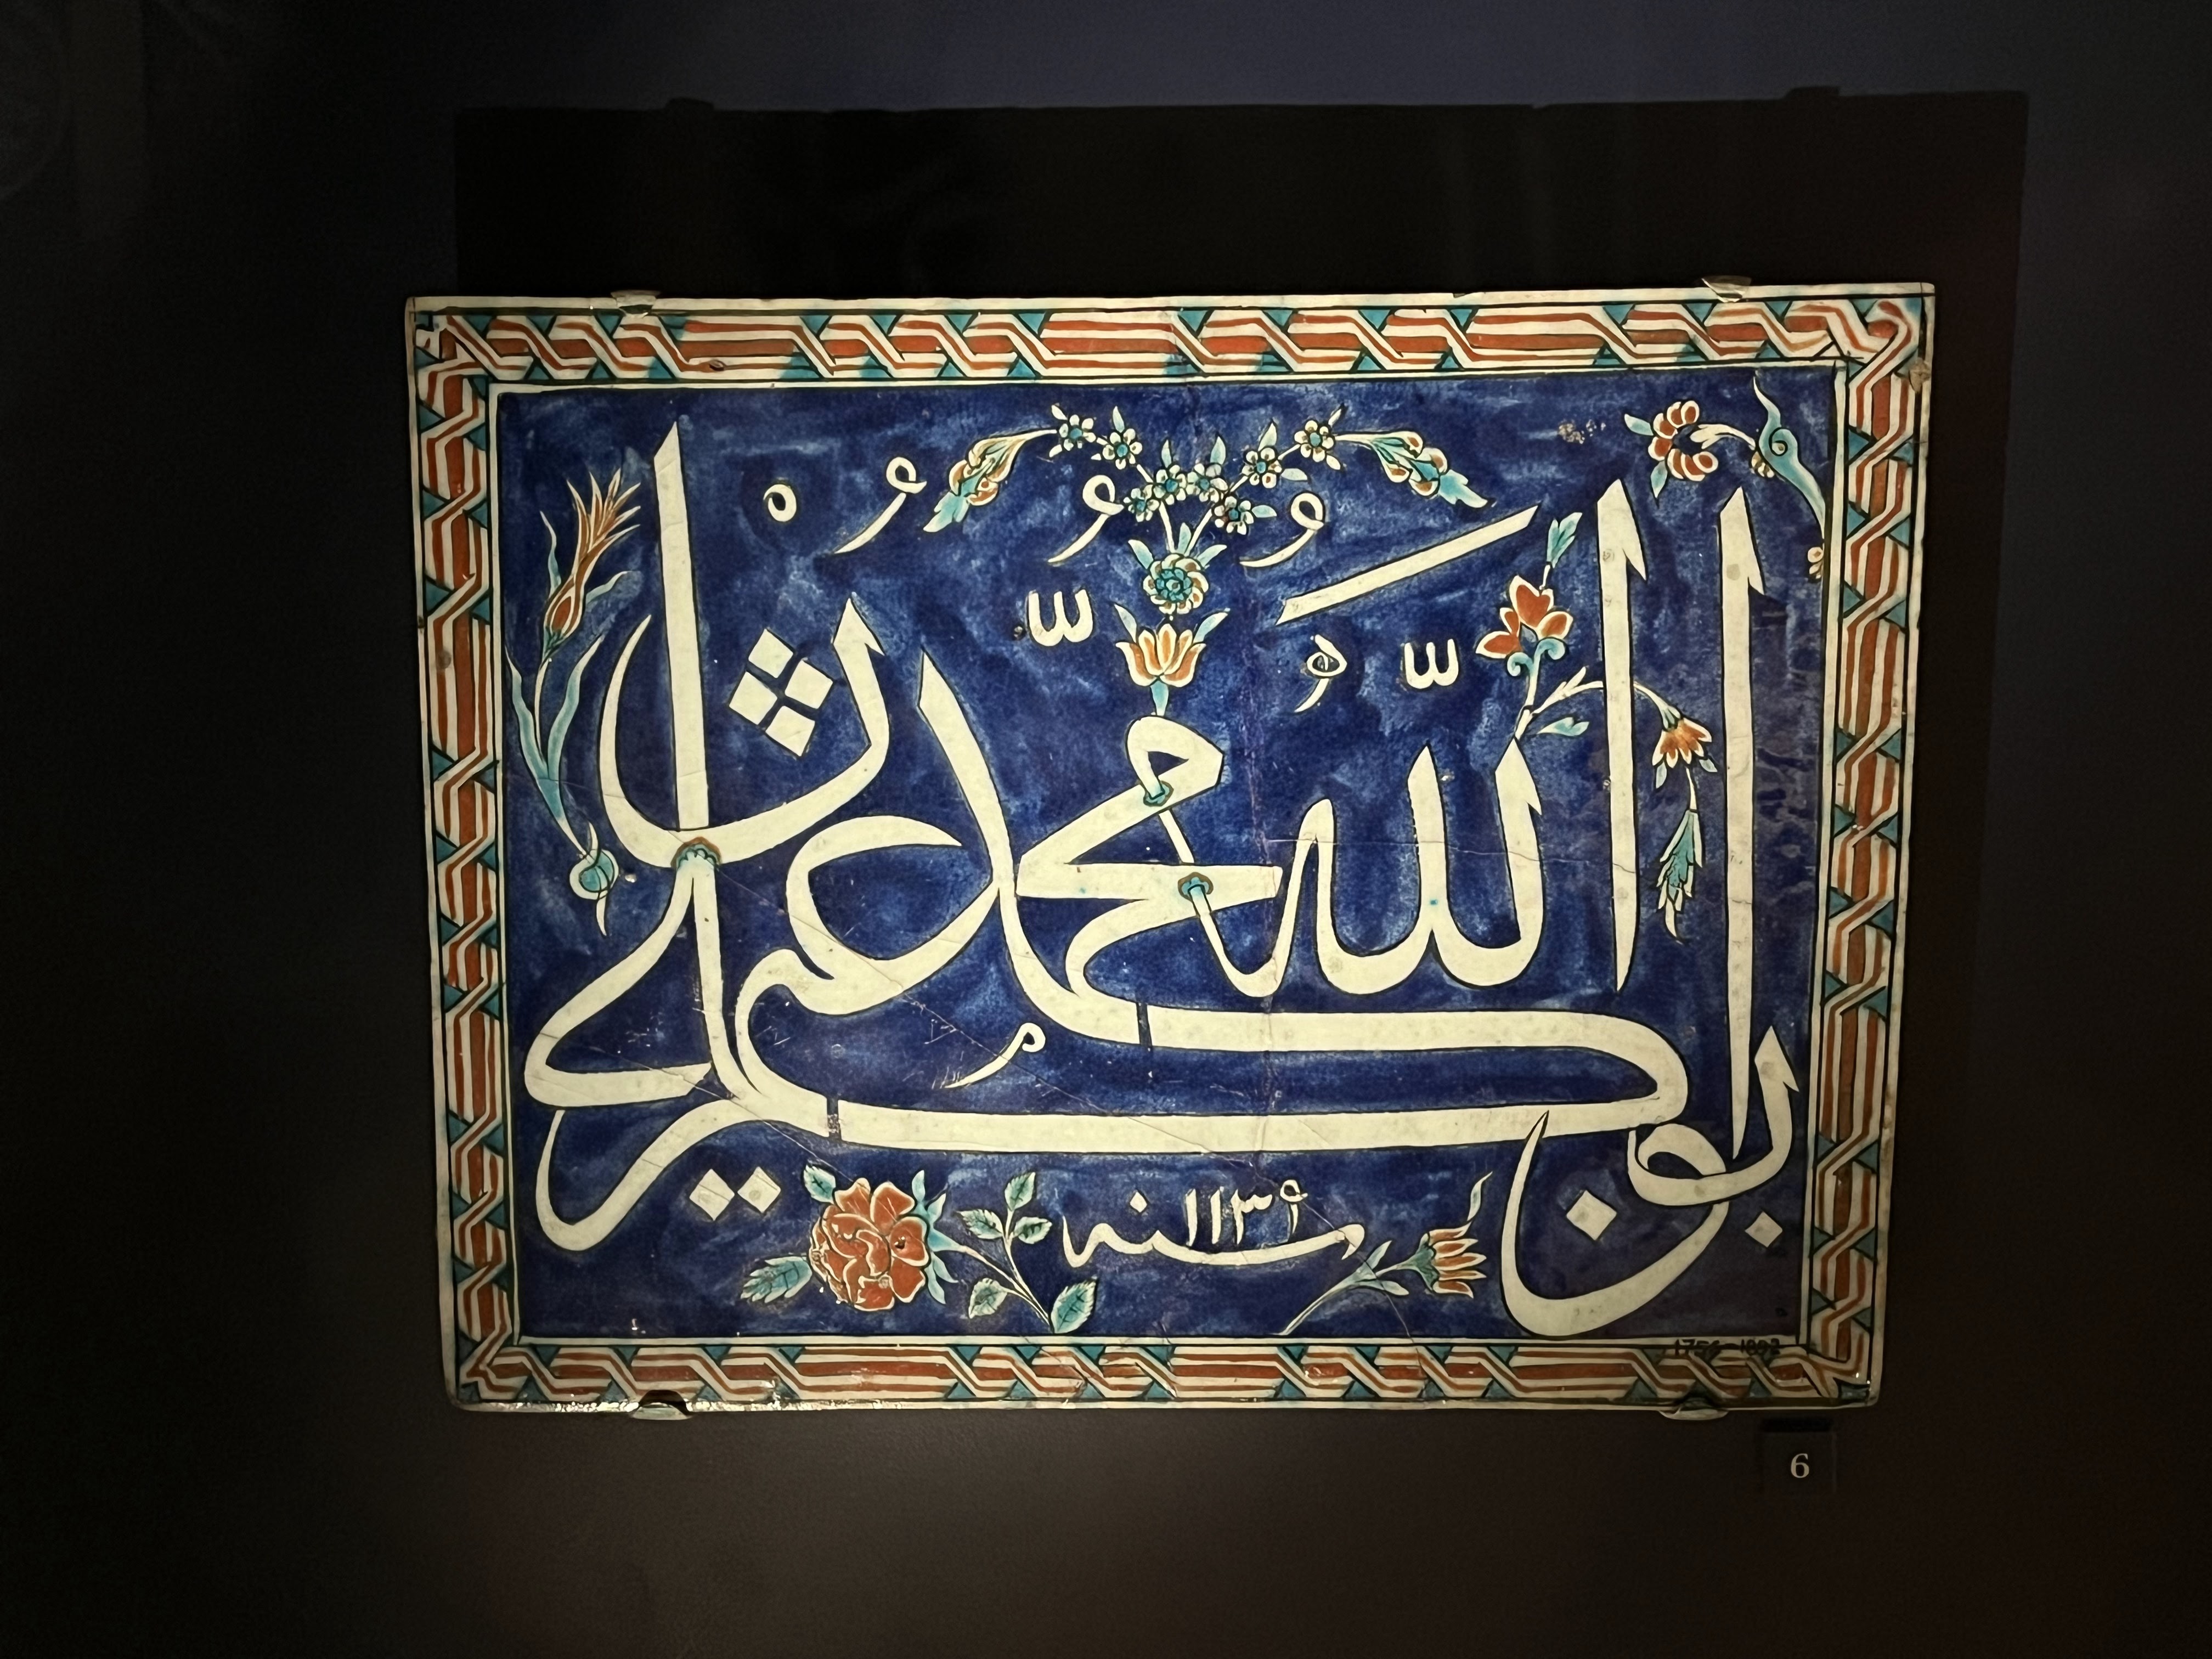 الله محمد
ابو بكر عمر عثمان علي
سنه ١١٣٩
1756-1892
6